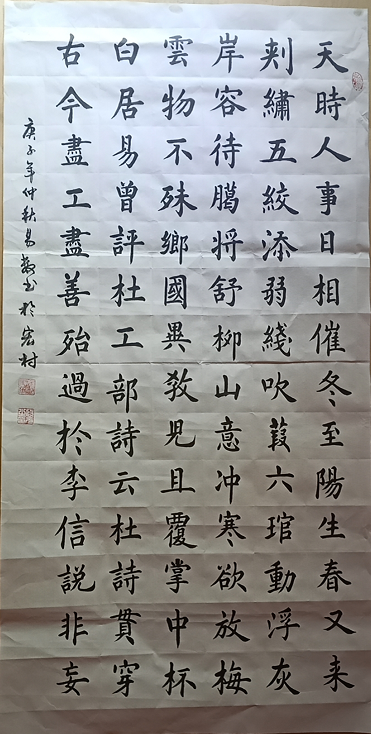 天時人事日相催冬至陽生春又来
刾繡五絞添弱綫吹葭六琯動浮灰
岸容待臈将舒柳山意冲寒欲放梅
雲物不殊鄉國異教児且覆掌中杯
白居易曾評杜工部詩云杜詩貫穿
古今盡工盡善殆過於李信説非妄
庚子年仲秋易教书於宏村